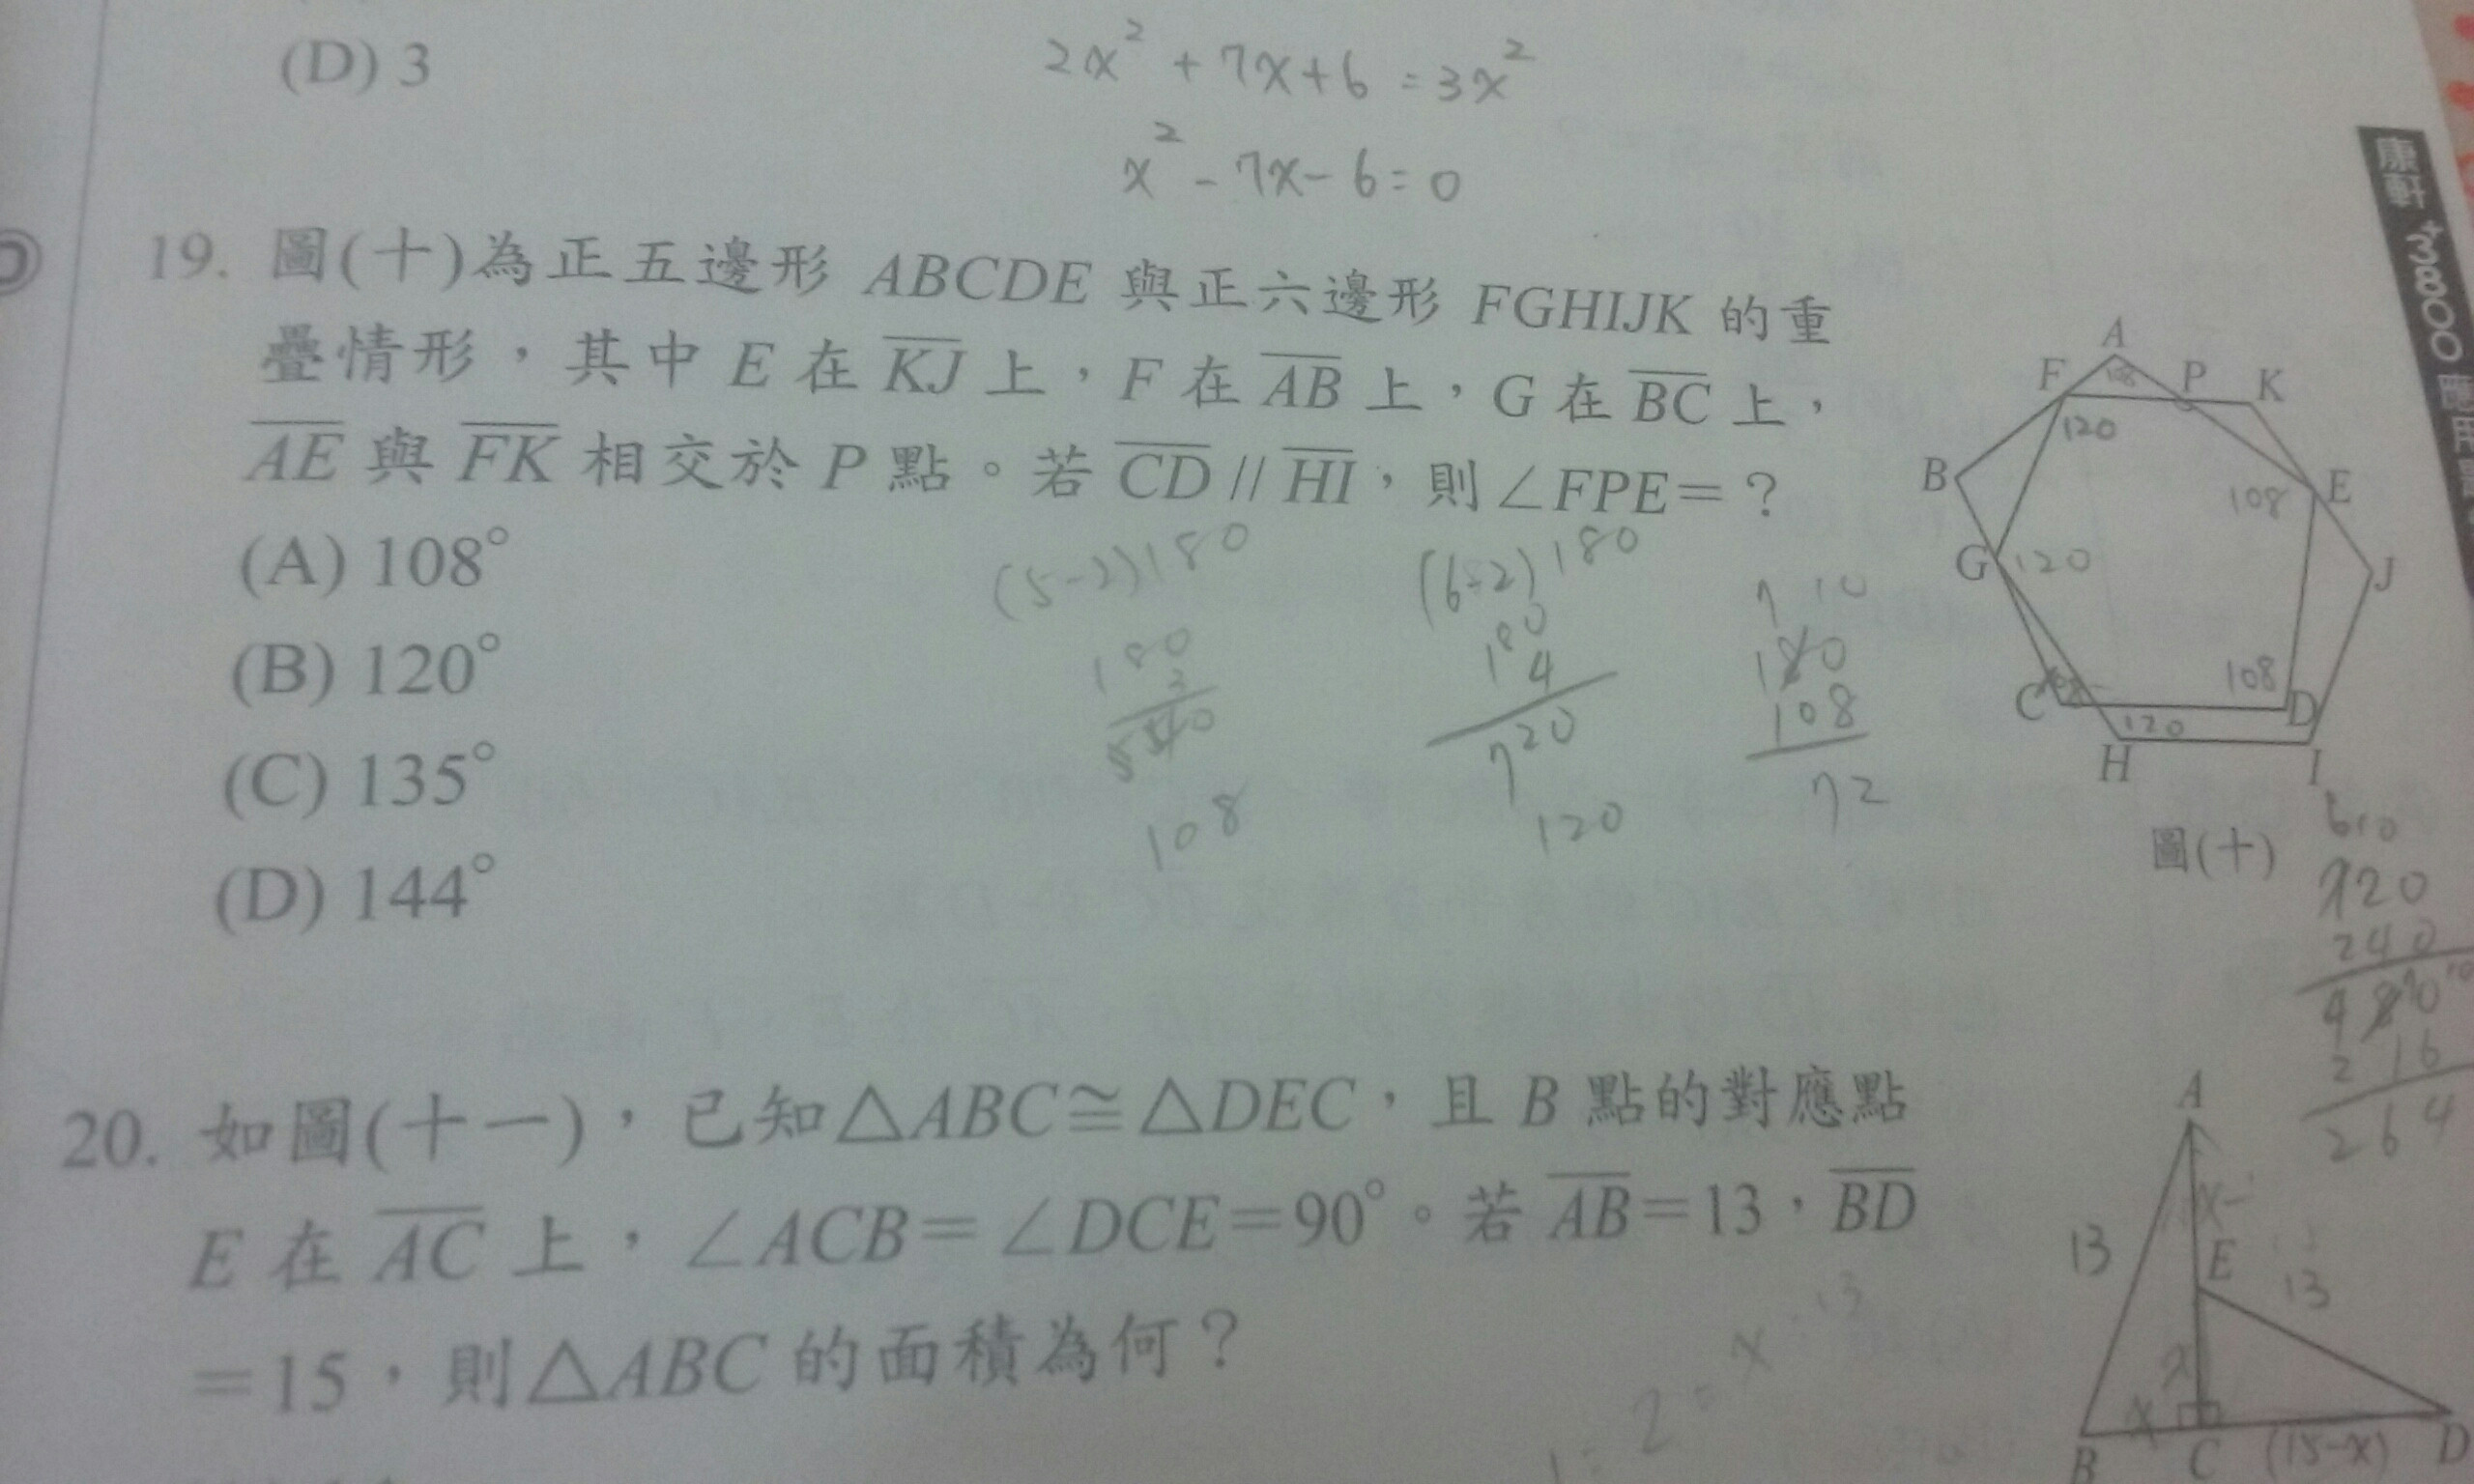 (D) 3
2x² + 7x + 6 = 3x²
x² - 7x - 6 = 0
19. 圖(十)為正五邊形 ABCDE 與正六邊形 FGHIJK 的重
疊情形,其中 E 在 KJ 上,F 在 AB 上,G 在 BC 上,
AE 與 FK 相交於 P 點。若 CD // HI,則∠FPE=?
(A) 108°
(B) 120°
(C) 135°
(D) 144°
(5-2)180
180
3
540
108
(6-2)180
180
4
720
120
7 10
180
108
72
A
F
108
P
K
120
B
108
E
G
120
J
C
108
D
120
H
I
圖(十)
6 10
720
240
480
10
216
264
康軒
3800
應用
20. 如圖(十一),已知△ABC≅△DEC,且 B 點的對應點
E 在 AC 上,∠ACB=∠DCE=90°。若 AB=13,BD
=15,則△ABC 的面積為何?
A
x-
13
E
13
x
x
B
C
(15-x)
D
x
13
2